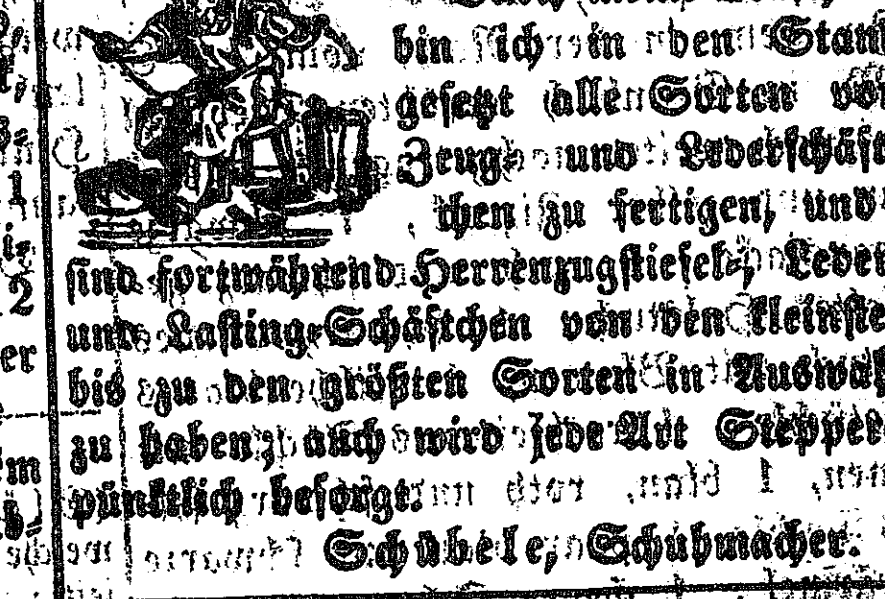 bin ich in den Stan
gesetzt allen Sorten vo
Zeug= und Lederschäft
chen zu fertigen, und
sind fortwährend Herrenzugstiefel=, Leder
und Lasting=Schäftchen von den kleinste
bis zu den größten Sorten in Auswah
zu haben; auch wird jede Art Stepper
pünktlich besorgt.
Schübele, Schuhmacher.